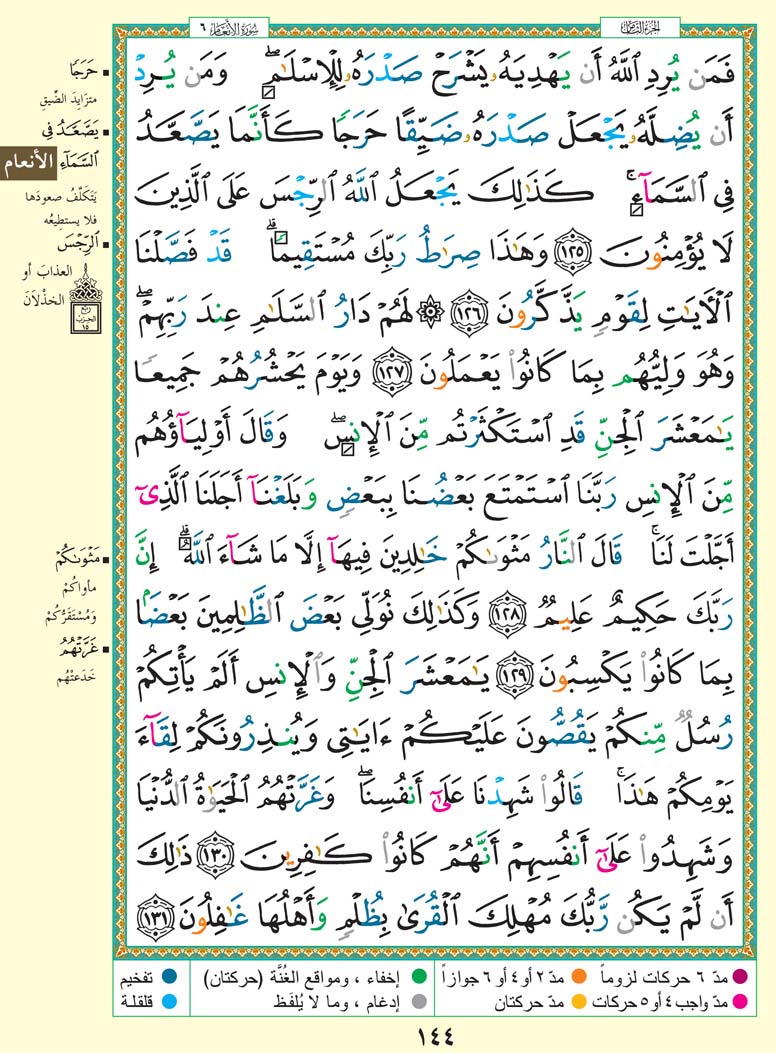 سُورَةُ الأَنْعَام ٦
الجُزءُ الثَّامِن
فَمَن يُرِدِ ٱللَّهُ أَن يَهْدِيَهُۥ يَشْرَحْ صَدْرَهُۥ لِلْإِسْلَـٰمِ ۖ وَمَن يُرِدْ
أَن يُضِلَّهُۥ يَجْعَلْ صَدْرَهُۥ ضَيِّقًا حَرَجًا كَأَنَّمَا يَصَّعَّدُ
فِى ٱلسَّمَآءِ ۚ كَذَٰلِكَ يَجْعَلُ ٱللَّهُ ٱلرِّجْسَ عَلَى ٱلَّذِينَ
لَا يُؤْمِنُونَ ١٢٥ وَهَـٰذَا صِرَٰطُ رَبِّكَ مُسْتَقِيمًا ۗ قَدْ فَصَّلْنَا
ٱلْـَٔايَـٰتِ لِقَوْمٍ يَذَّكَّرُونَ ١٢٦ ۞ لَهُمْ دَارُ ٱلسَّلَـٰمِ عِندَ رَبِّهِمْ ۖ
وَهُوَ وَلِيُّهُم بِمَا كَانُوا۟ يَعْمَلُونَ ١٢٧ وَيَوْمَ يَحْشُرُهُمْ جَمِيعًا
يَـٰمَعْشَرَ ٱلْجِنِّ قَدِ ٱسْتَكْثَرْتُم مِّنَ ٱلْإِنسِ ۖ وَقَالَ أَوْلِيَآؤُهُم
مِّنَ ٱلْإِنسِ رَبَّنَا ٱسْتَمْتَعَ بَعْضُنَا بِبَعْضٍ وَبَلَغْنَآ أَجَلَنَا ٱلَّذِىٓ
أَجَّلْتَ لَنَا ۚ قَالَ ٱلنَّارُ مَثْوَىٰكُمْ خَـٰلِدِينَ فِيهَآ إِلَّا مَا شَآءَ ٱللَّهُ ۗ إِنَّ
رَبَّكَ حَكِيمٌ عَلِيمٌ ١٢٨ وَكَذَٰلِكَ نُوَلِّى بَعْضَ ٱلظَّـٰلِمِينَ بَعْضًۢا
بِمَا كَانُوا۟ يَكْسِبُونَ ١٢٩ يَـٰمَعْشَرَ ٱلْجِنِّ وَٱلْإِنسِ أَلَمْ يَأْتِكُمْ
رُسُلٌ مِّنكُمْ يَقُصُّونَ عَلَيْكُمْ ءَايَـٰتِى وَيُنذِرُونَكُمْ لِقَآءَ
يَوْمِكُمْ هَـٰذَا ۚ قَالُوا۟ شَهِدْنَا عَلَىٰٓ أَنفُسِنَا ۖ وَغَرَّتْهُمُ ٱلْحَيَوٰةُ ٱلدُّنْيَا
وَشَهِدُوا۟ عَلَىٰٓ أَنفُسِهِمْ أَنَّهُمْ كَانُوا۟ كَـٰفِرِينَ ١٣٠ ذَٰلِكَ
أَن لَّمْ يَكُن رَّبُّكَ مُهْلِكَ ٱلْقُرَىٰ بِظُلْمٍ وَأَهْلُهَا غَـٰفِلُونَ ١٣١
حَرَجًا
متزايدَ الضِّيقِ
يَصَّعَّدُ فِي
السَّمَآءِ
الأنعام
يَتَكَلَّفُ صعودَها
فلا يستطِيعُه
الرِّجْسَ
العذابَ أو
الخذْلَانَ
ربع
الحزب
١٥
مَثْوَىٰكُمْ
مأواكُمْ
وَمُسْتَقَرُّكُمْ
غَرَّتْهُمُ
خَدَعتْهُم
مدّ ٦ حركات لزوماً
مدّ ٢ أو ٤ أو ٦ جوازاً
إخفاء ، ومواقع الغُنَّة (حركتان)
تفخيم
مدّ واجب ٤ أو ٥ حركات
مدّ حركتان
إدغام ، وما لا يُلفَظ
قلقلة
١٤٤